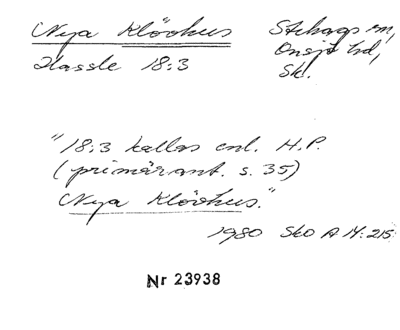 Nya Klövhus Stehags sn,
Hassle 18:3 Onsjö hd,
Sk.
"18:3 kallas enl. H.P.
(primärant. s. 35)
Nya Klövhus."
1980 Sko A M:215
Nr 23938